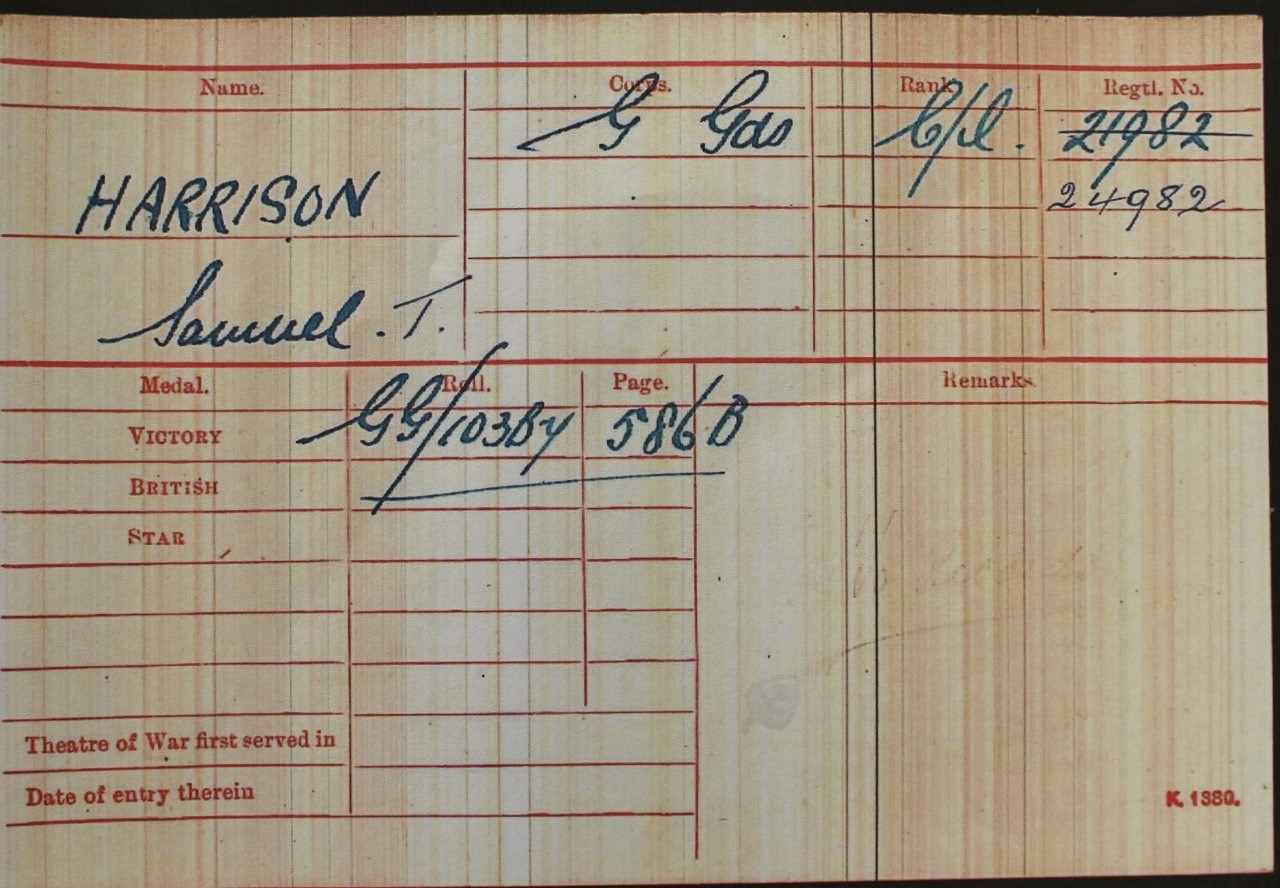 Name. Corps. Rank Regtl. No.
G Gds C/pl. 21982
24982
HARRISON
Samuel . T.
Medal. Roll. Page. Remarks.
VICTORY GG/103B4 586B
BRITISH
STAR
Theatre of War first served in
Date of entry therein
K. 1380.